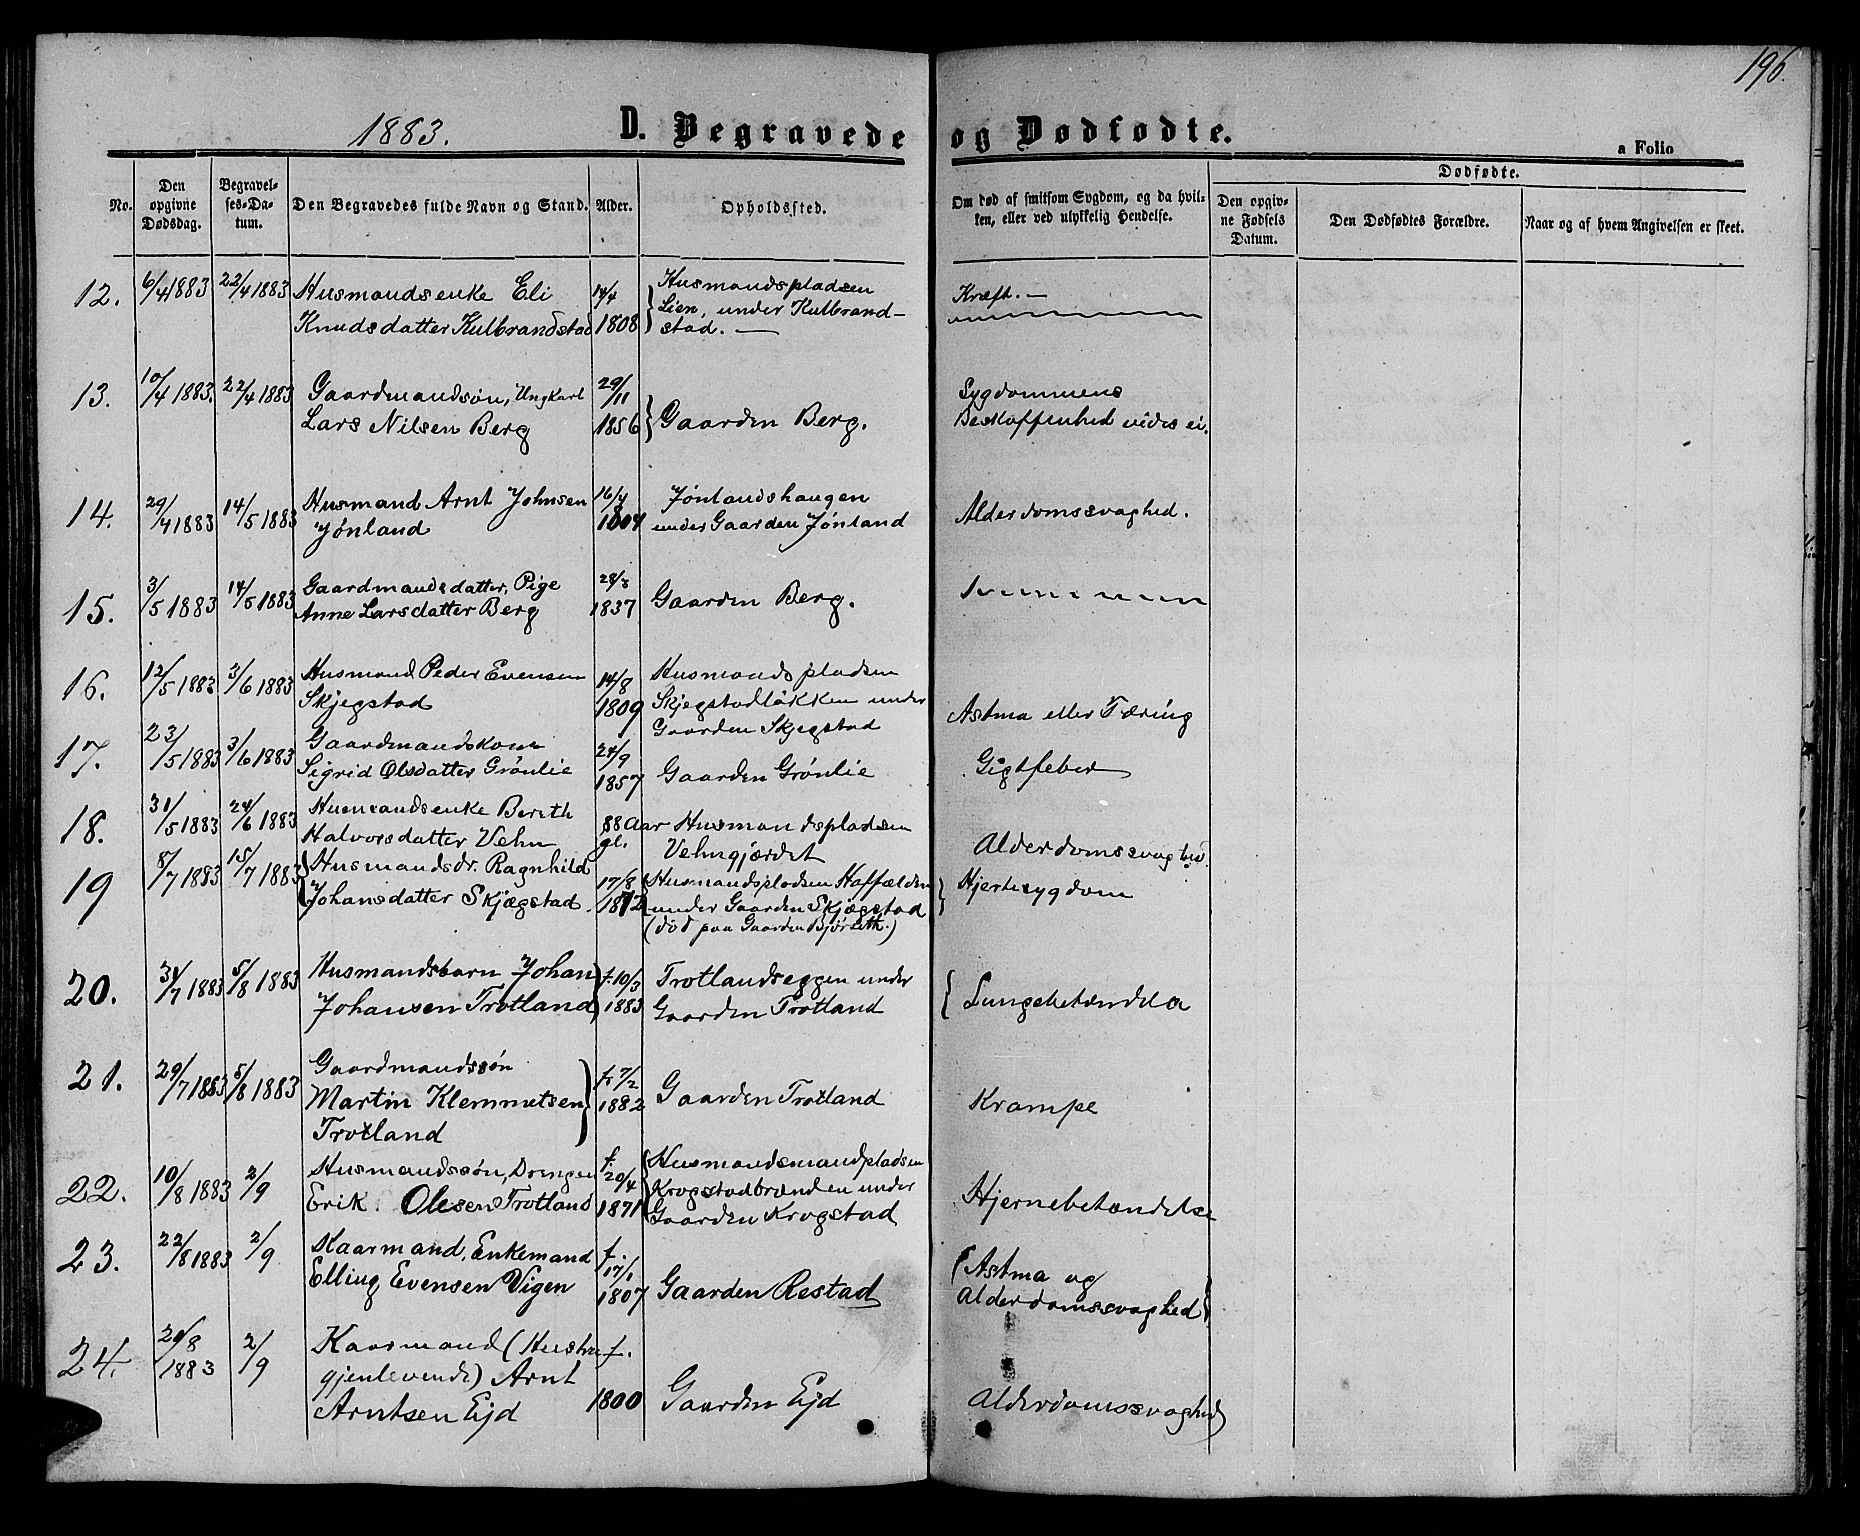 196.
1883.
D. Begravede og Dødfødte.
a Folio
No.
Den opgivne Dødsdag.
Begravelses-Datum.
Den Begravedes fulde Navn og Stand.
Alder.
Opholdssted.
Om død af smitsom Sygdom, og da hvilken, eller ved ulykkelig Hendelse.
Dødfødte.
Den opgivne Fødsels Datum.
Den Dødfødtes Forældre.
Naar og af hvem Angivelsen er skeet.
12. 6/4 1883 22/4 1883 Husmandsenke Eli 14/4 Husmandspladsen
Knudsdatter Kulbrandstad 1808 Lien, under Kulbrand-
stad. — Kræft. —
13. 10/4 1883. 22/4 1883 Gaardmandsøn, Ungkarl 29/11 Sygdommens
Lars Nilsen Berg 1856 Gaarden Berg. Beskaffenhed vides ei.
14. 29/4 1883 14/5 1883 Husmand Arnt Johnsen 16/4 Jønlandshaugen
Jønland 1804 under Gaarden Jønland Alderdomssvaghed.
15. 3/5 1883 14/5 1883 Gaardmandsdatter, Pige
Anne Larsdatter Berg 1837 Gaarden Berg.
16. 12/5 1883 3/6 1883 Husmand Peder Evensen 14/8 Husmandspladsen
Skjegstad 1809 Skjegstadløkken under
Gaarden Skjegstad Astma eller Tæring
17. 23/5 1883 3/6 1883 Gaardmandskone 24/9
Sigrid Olsdatter Grønlie 1857 Gaarden Grønlie Gigtfeber
18. 31/5 1883 24/6 1883 Husmandsenke Bereth 88 Aar Husmandspladsen
Halvorsdatter Vehn gl. Vehngjærdet Alderdomssvaghed.
19 8/7 1883 15/7 1883 Husmandsdr. Ragnhild 17/8 Husmandspladsen Haffælden
Johansdatter Skjægstad. 1872 under Gaarden Skjægstad Hjertesygdom
(død paa Gaarden Bjørseth.)
20. 31/7 1883 5/8 1883 Husmandsbarn Johan f. 10/3 Trotlandseggen under
Johansen Trotland 1883 Gaarden Trotland Lungebetændela
21. 29/7 1883 5/8 1883 Gaardmandssøn
Martin Klemmetsen f. 7/2 1882 Gaarden Trotland Krampe
Trotland
22. 10/8 1883 2/9 Husmandssøn, Drengen f. 20/4 Husmandsmandpladsen
Erik Olesen Trotland 1871 Krogstadbrænden under
Gaarden Krogstad Hjernebetændelse
23. 22/8 1883 2/9 Kaarmand, Enkemand f. 17/1 Astma og
Elling Evensen Vigen 1807 Gaarden Restad Alderdomssvaghed
24. 29/8 1883 2/9 Kaarmand (Hustru f.
gjenlevende) Arnt
Arntsen Ejd 1800 Gaarden Ejd Alderdomssvaghed